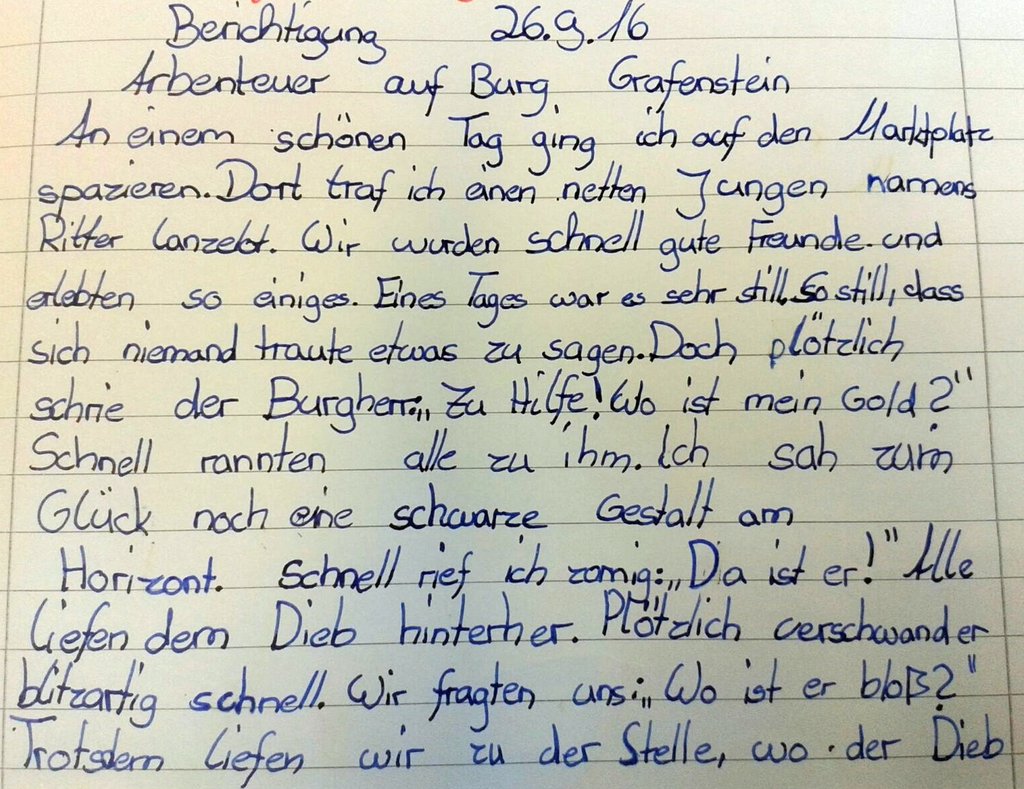 Berichtigung 26.9.16
Arbenteuer auf Burg Grafenstein
An einem schönen Tag ging ich auf den Marktplatz
spazieren. Dort traf ich einen netten Jungen namens
Ritter Lanzelot. Wir wurden schnell gute Freunde und
erlebten so einiges. Eines Tages war es sehr still. So still, dass
sich niemand traute etwas zu sagen. Doch plötzlich
schrie der Burgherr: „Zu Hilfe! Wo ist mein Gold?"
Schnell rannten alle zu ihm. Ich sah zum
Glück noch eine schwarze Gestalt am
Horizont. Schnell rief ich zornig: „Da ist er!" Alle
liefen dem Dieb hinterher. Plötzlich verschwand er
blitzartig schnell. Wir fragten uns: „Wo ist er bloß?"
Trotsdem liefen wir zu der Stelle, wo der Dieb